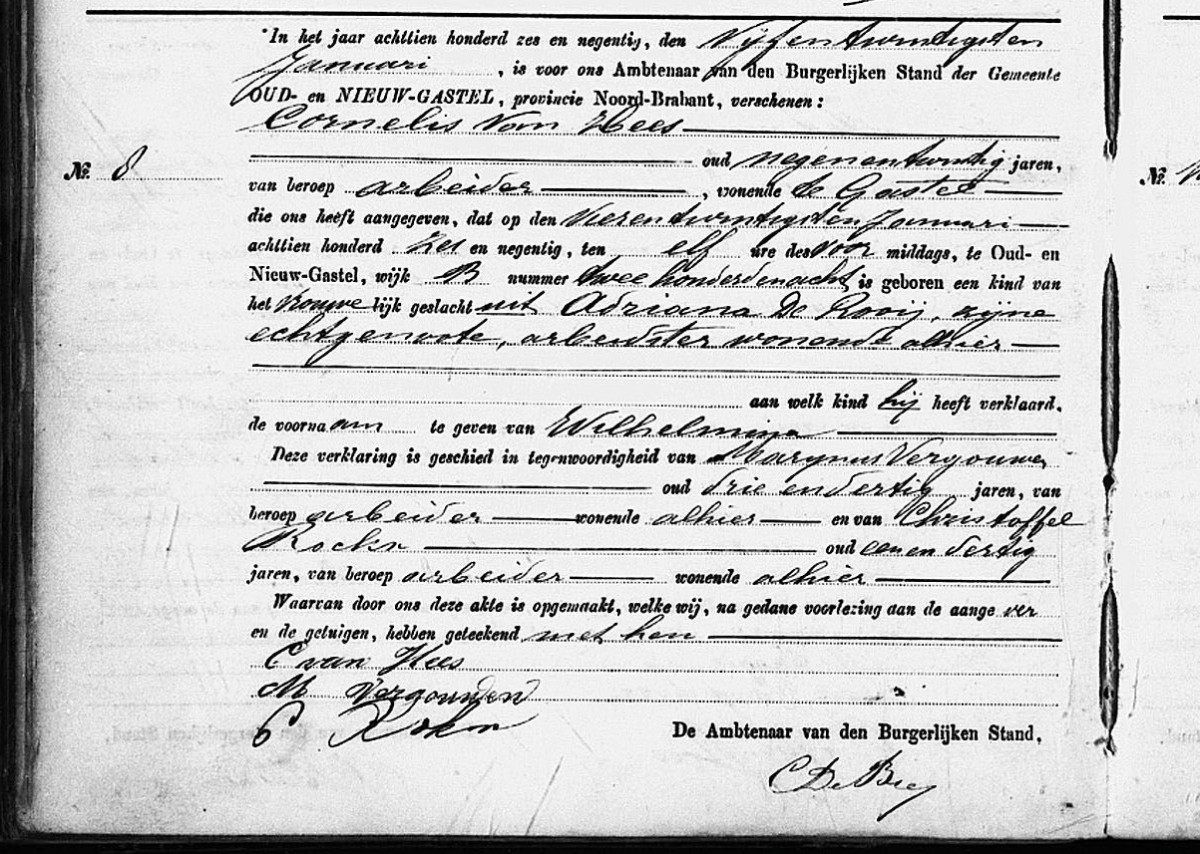 In het jaar achttien honderd zes en negentig, den Vijfentwintigsten
Januari, is voor ons Ambtenaar van den Burgerlijken Stand der Gemeente
OUD- en NIEUW-GASTEL, provincie Noord-Brabant, verschenen:
Cornelis Van Hees
oud negenentwintig jaren,
No. 8
van beroep arbeider, wonende te Gastel
die ons heeft aangegeven, dat op den Vierentwintigsten Januari
achttien honderd zes en negentig, ten elf ure des voor middags, te Oud- en
Nieuw-Gastel, wijk B nummer twee honderdenacht is geboren een kind van
het Vrouwelijk geslacht uit Adriana De Rooij, zijne
echtgenoote, arbeidster wonende alhier
aan welk kind hij heeft verklaard,
de voornaam te geven van Wilhelmina
Deze verklaring is geschied in tegenwoordigheid van Marynus Vergouwen
oud drie endertig jaren, van
beroep arbeider wonende alhier en van Christoffel
oud eenen dertig
jaren, van beroep arbeider wonende alhier
Waarvan door ons deze akte is opgemaakt, welke wij, na gedane voorlezing aan de aangever
en de getuigen, hebben geteekend met hen
C van Hees
M Vergouwen
C
De Ambtenaar van den Burgerlijken Stand,
C De Bie
No.